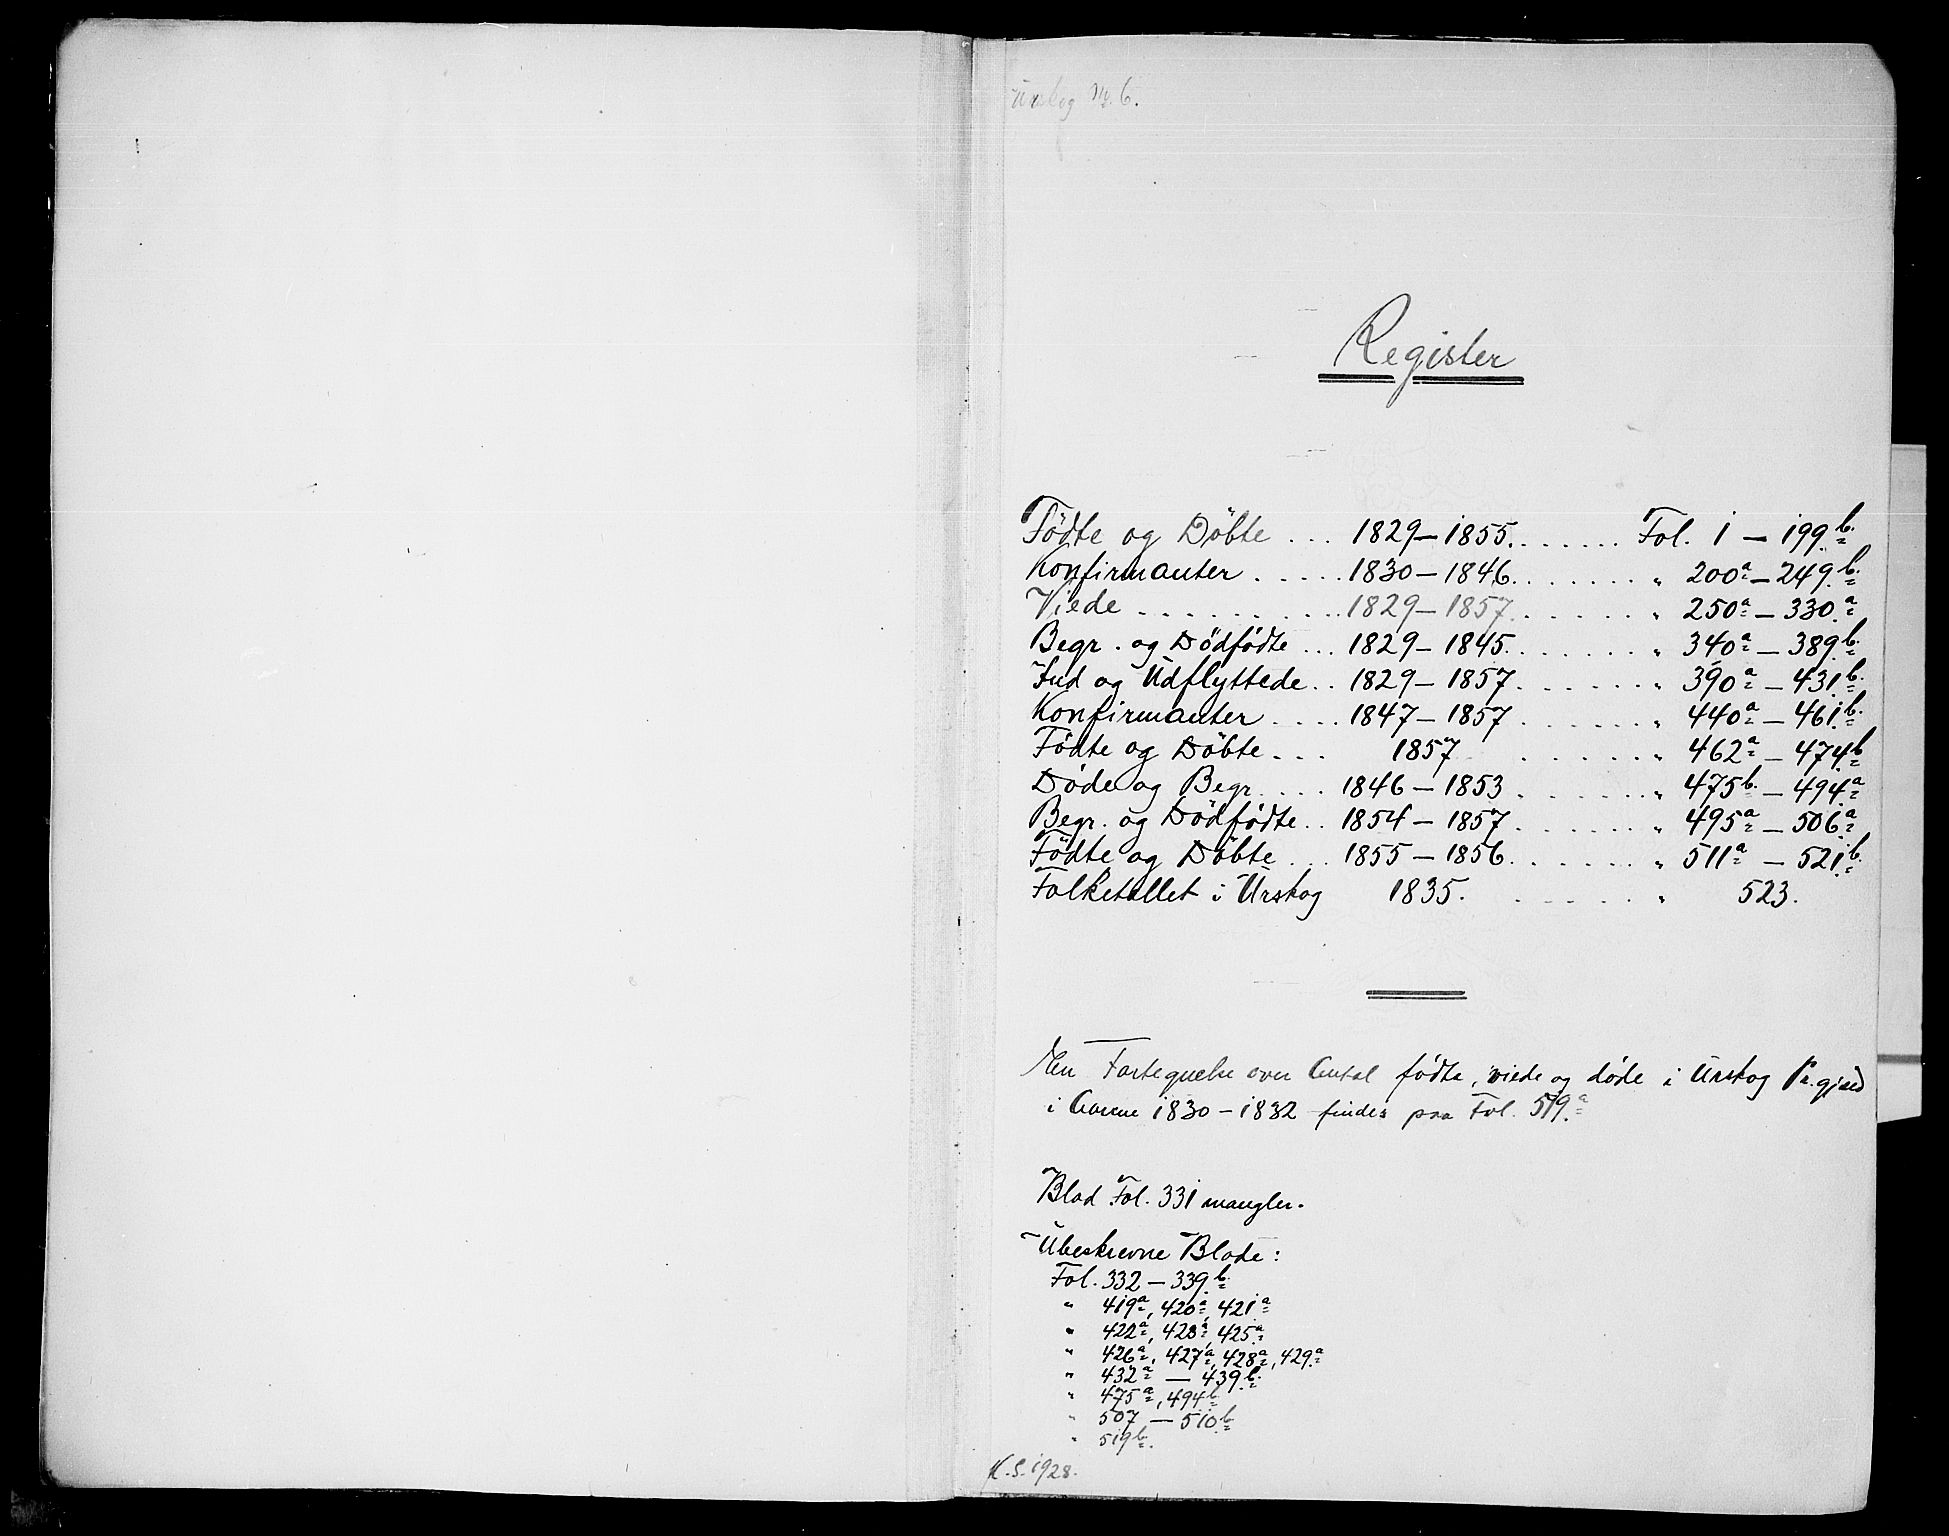 Urskog No. 6.
Register
Födte og Döbte ... 1829 – 1855. ....... Fol. 1 – 199 b.
Konfirmanter ..... 1830 – 1846. ....... " 200 a – 249 b.
Viede .......... 1829 – 1857. ....... " 250 a – 330 a
Begr. og Dödfödte ... 1829 – 1845. ....... " 340 a – 389 b.
Ind og Udflyttede .. 1829 – 1857. ....... " 390 a – 431 b.
Konfirmanter .... 1847 – 1857 ....... " 440 a – 461 b.
Födte og Döbte ... 1857 ....... " 462 a – 474 b
Döde og Begr. .... 1846 – 1853 ....... " 475 b. – 494 a
Begr. og Dödfödte .. 1854 – 1857. ....... " 495 a – 506 a
Födte og Döbte ... 1855 – 1856. ....... " 511 a – 521 b.
Folketallet i Urskog 1835. ...... " 523.
En Fortegnelse over Antal födte, viede og döde i Urskog Pr.gjæld
i Aarene 1830 – 1832 findes paa Fol. 519 a
Blad Fol. 331 mangler.
Ubeskrevne Blade:
Fol. 332 – 339 b.
" 419 a, 420 a, 421 a
" 422 a, 423 a, 425 a
" 426 a, 427 a, 428 a, 429 a
" 432 a – 439 b.
" 475 a, 494 b.
" 507 – 510 b
" 519 b.
K. S. 1928.